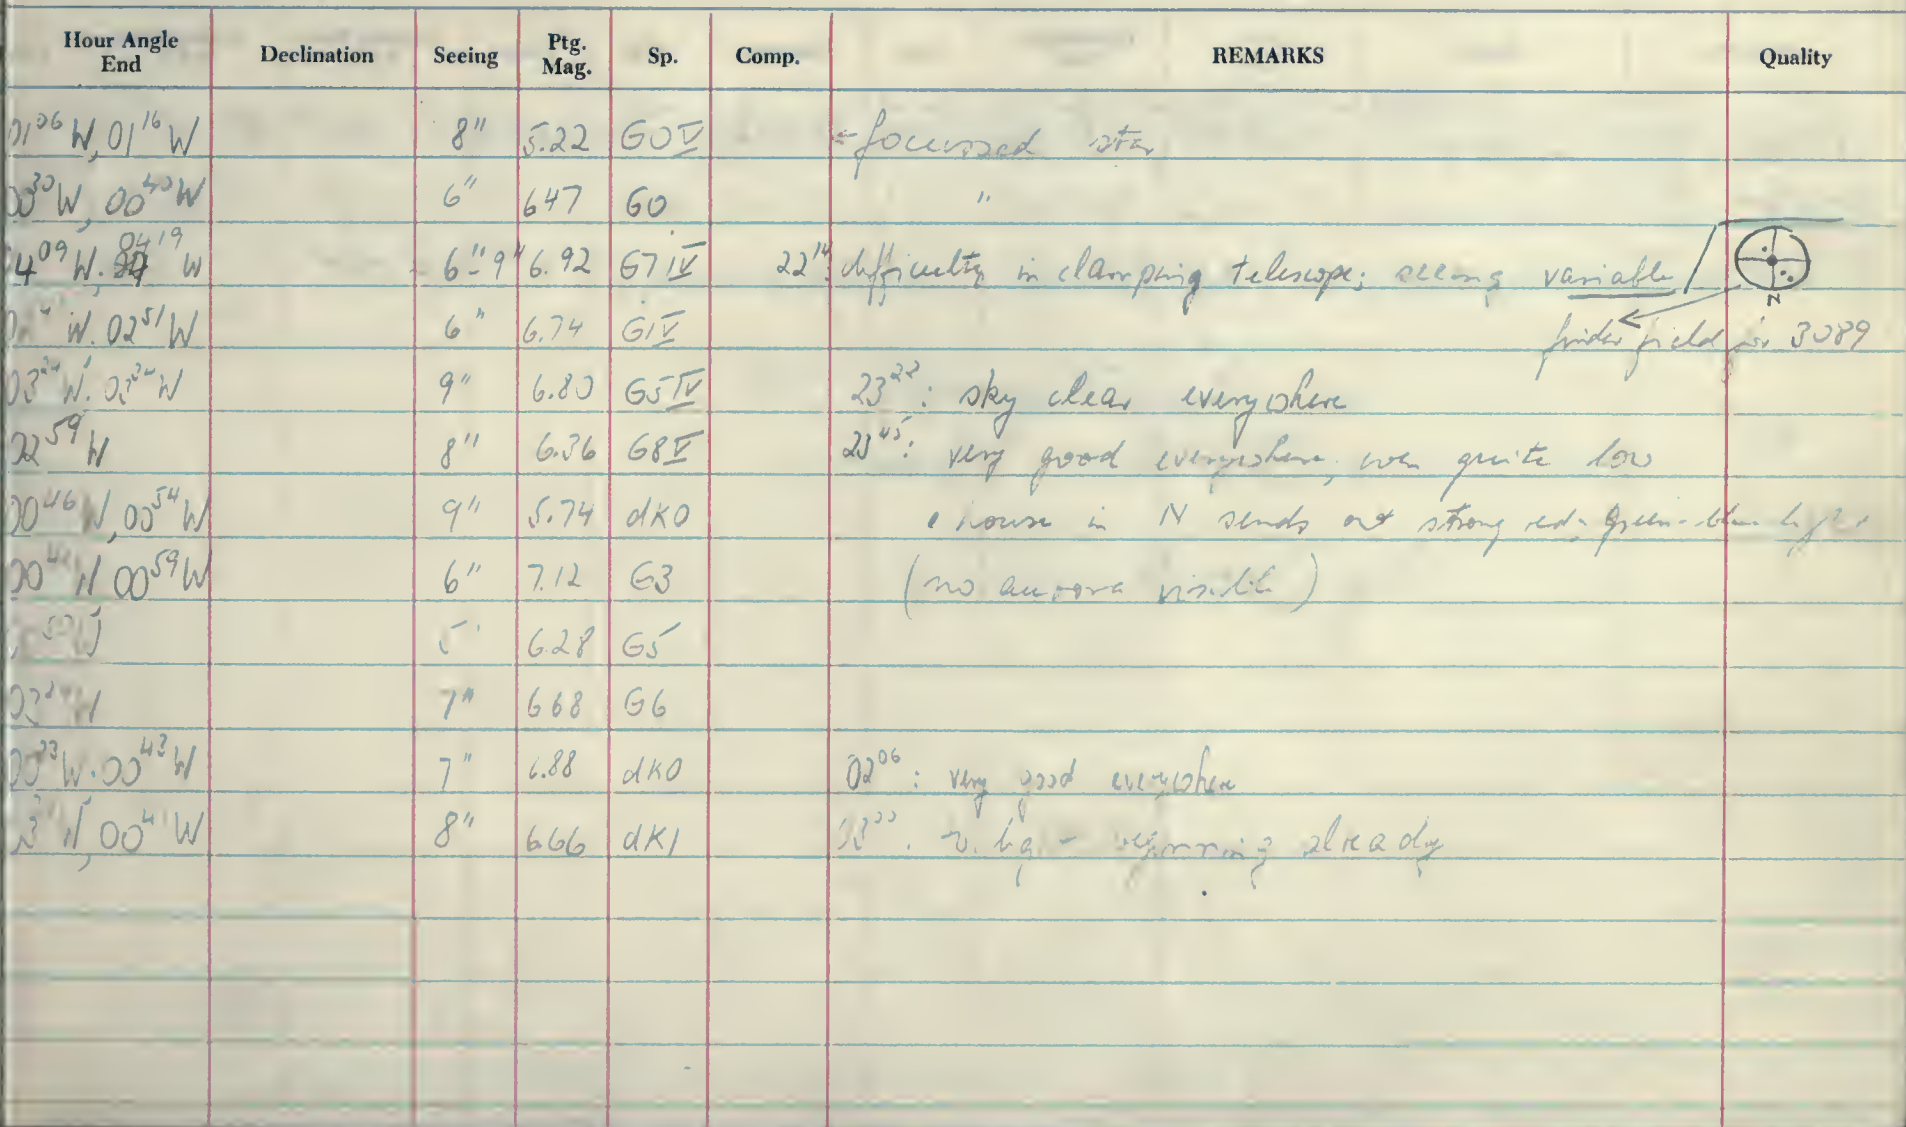 Hour Angle End Declination Seeing Ptg. Mag. Sp. Comp. REMARKS Quality
01 06 W, 01 16 W 8" 5.22 G0V focussed star
00 30 W, 00 40 W 6" 6.47 G0 "
4 09 W, 04 19 W 6"-9" 6.92 G7IV 22 14 difficulty in clamping telescope; seeing variable
N
W. 02 51 W 6" 6.74 G1V finder field for 3089
9" 6.80 G5IV 23 22 : sky clear everywhere
22 59 W 8" 6.36 G8V 23 45 : very good everywhere, even quite low
00 46 W, 00 54 W 9" 5.74 dK0 house in N sends out strong red, green-blue
00 59 W 6" 7.12 G3 (no aurora visible)
5" 6.28 G5
7" 6.68 G6
00 33 W. 00 43 W 7" 6.88 dK0 02 06 : very good everywhere
W 8" 6.66 dK1 already